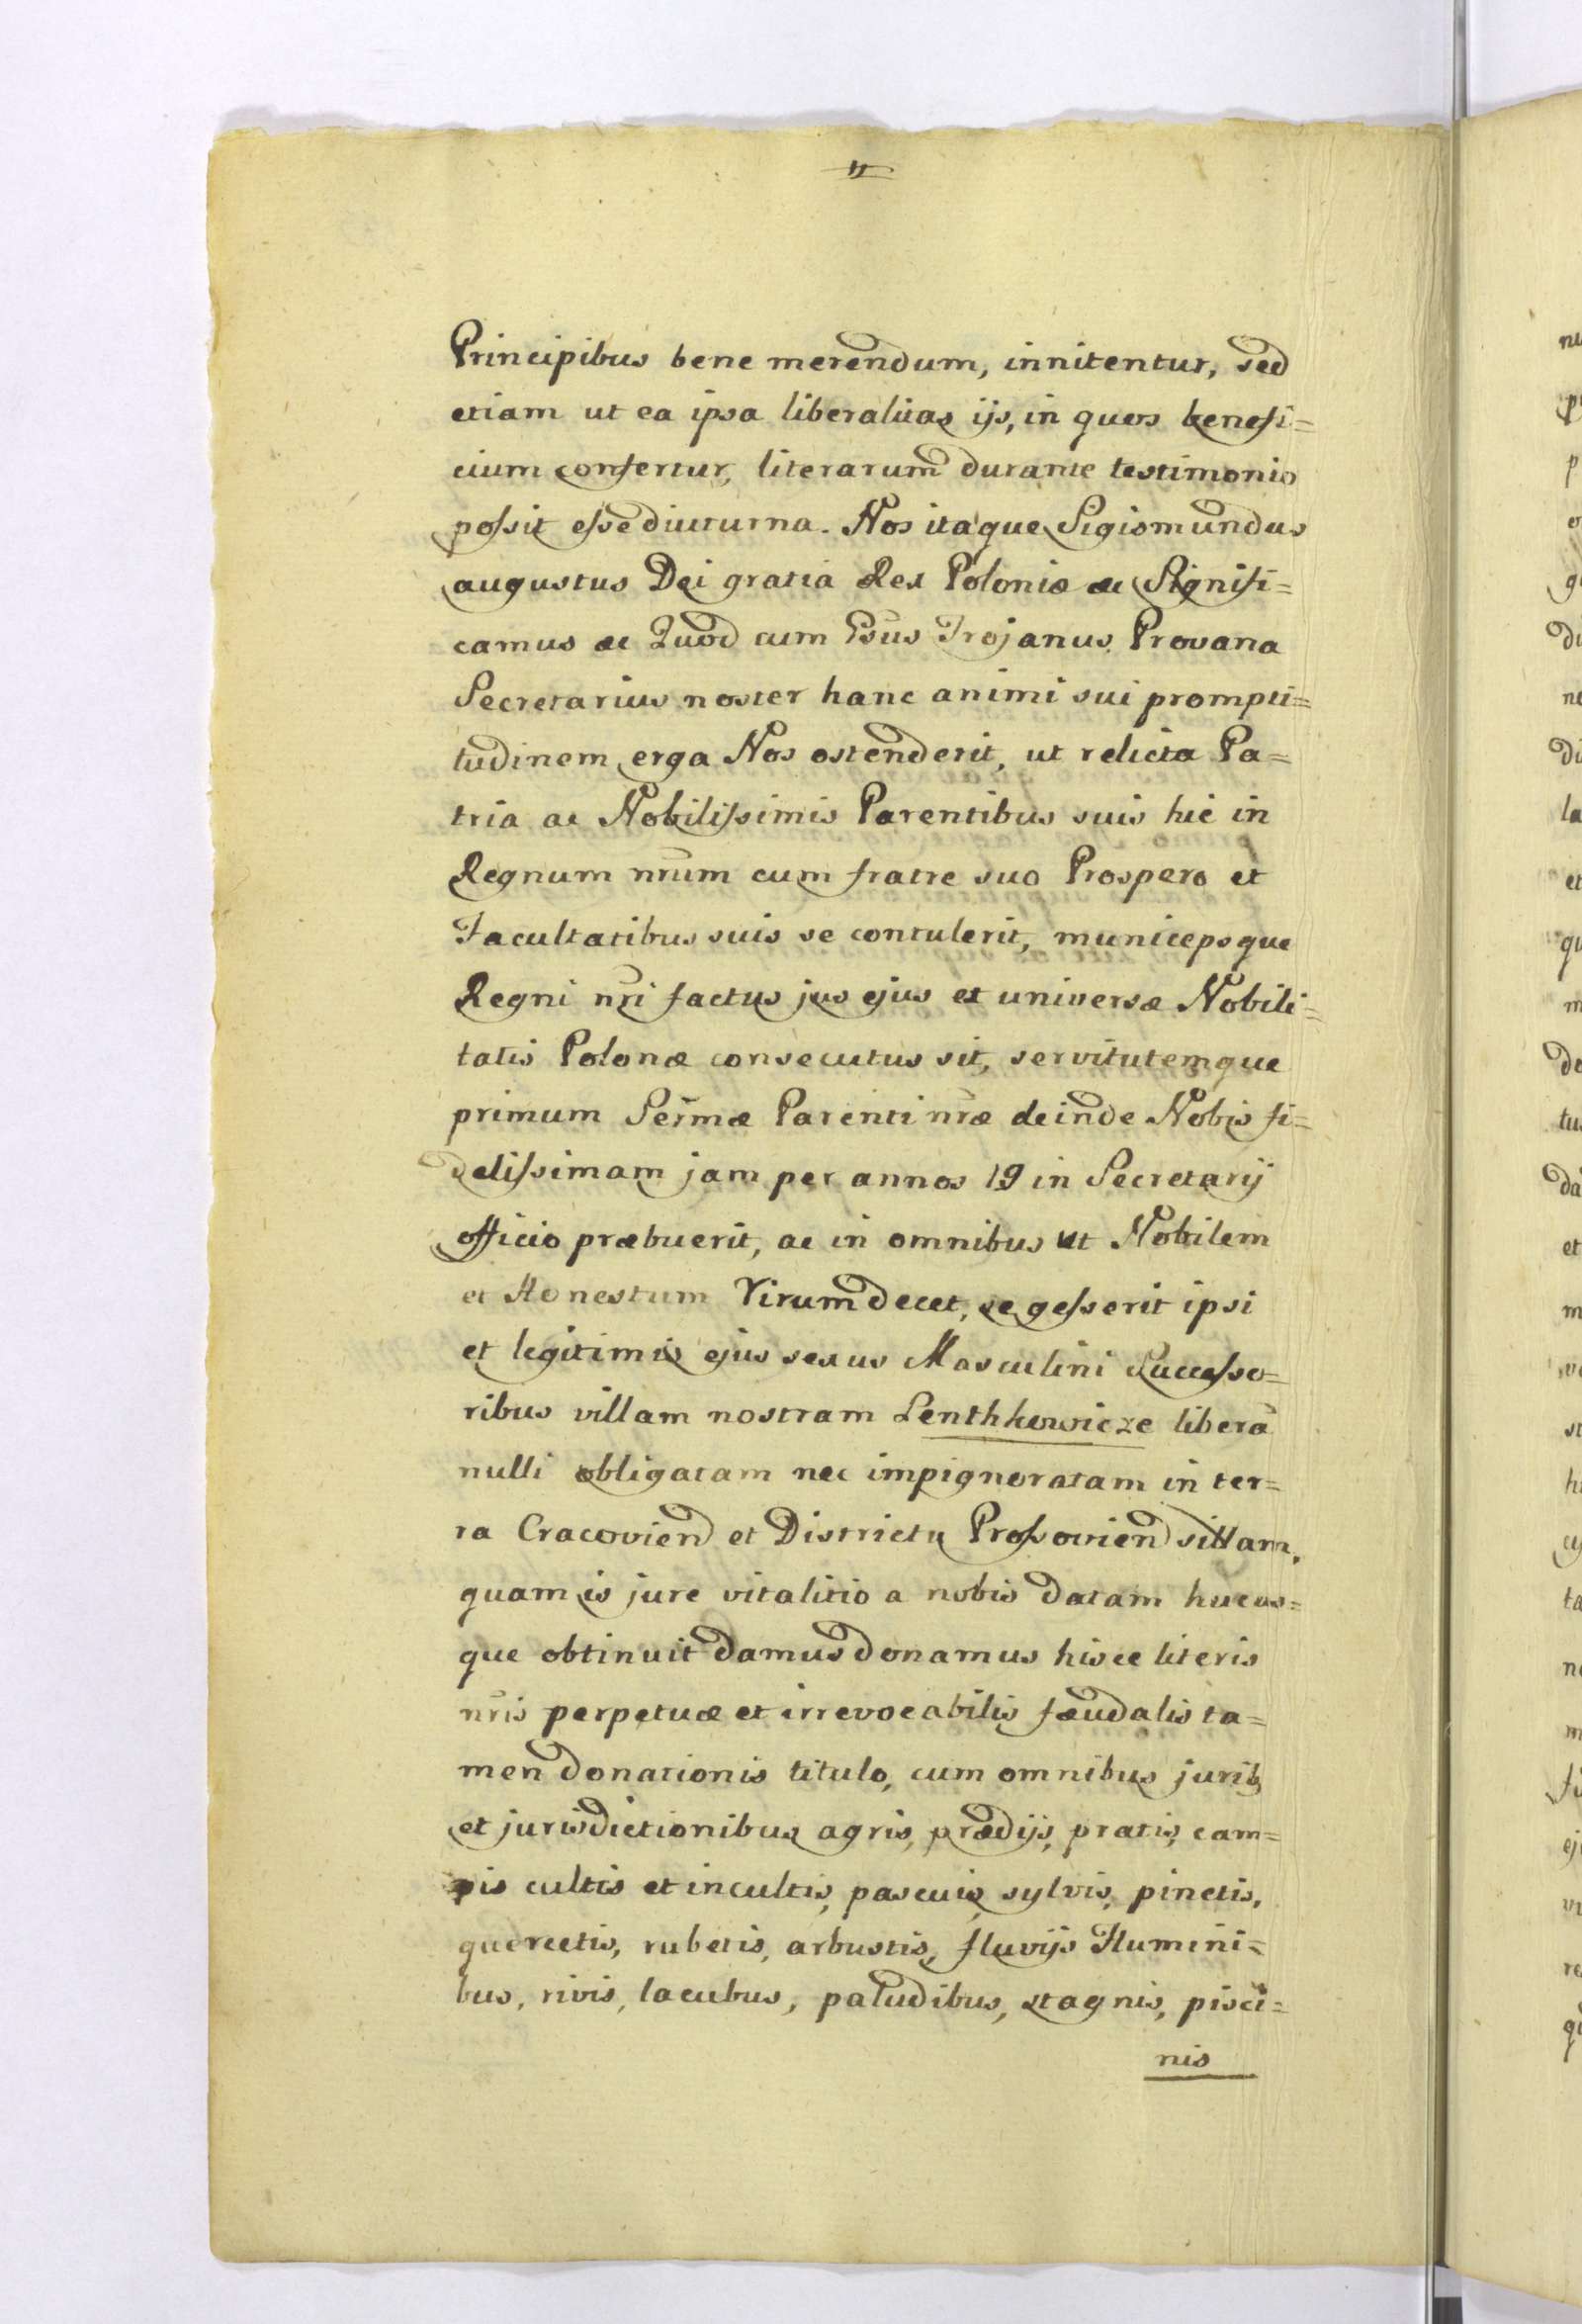 Principibus bene merendum, innitentur, sed
etiam ut ea ipsa liberalitas ijs, in quos benefi=
cium confertur, literarum durante testimonio
possit esse diuturna. Nos itaque Sigismundus
augustus Dei gratia Rex Poloniæ &c Signifi=
camus &c Quod cum Gsus Trojanus Provana
Secretarius noster hanc animi sui prompti=
tudinem erga Nos ostenderit, ut relicta Pa=
tria ac Nobilissimis Parentibus suis hic in
Regnum nrum cum fratre suo Prospero et
Facultatibus suis se contulerit, municepsque
Regni nri factus jus ejus et universæ Nobili=
tatis Polonæ consecutus sit, servitutemque
primum Sermæ Parenti nræ deinde Nobis fi=
delissimam jam per annos 19 in Secretarij
officio præbuerit, ac in omnibus ut Nobilem
et Honestum Virum decet, se gesserit ipsi
et legitimis ejus sexus Masculini Successo=
ribus villam nostram Lenthkowicze liberã
nulli obligatam nec impignoratam in ter=
ra Cracovien et Districtu Prossovien sittam,
quam is jure vitalitio a nobis datam hucus=
que obtinuit damus donamus hisce literis
nris perpetuæ et irrevocabilis fæudalis ta=
men donationis titulo, cum omnibus jurib
et jurisdictionibus agris, prædijs, pratis, cam=
pis cultis et incultis, pascuis, sylvis, pinetis,
quercetis, rubetis, arbustis, fluvijs Flumini=
bus, rivis, lacubus, paludibus, stagnis, pisci=
nis